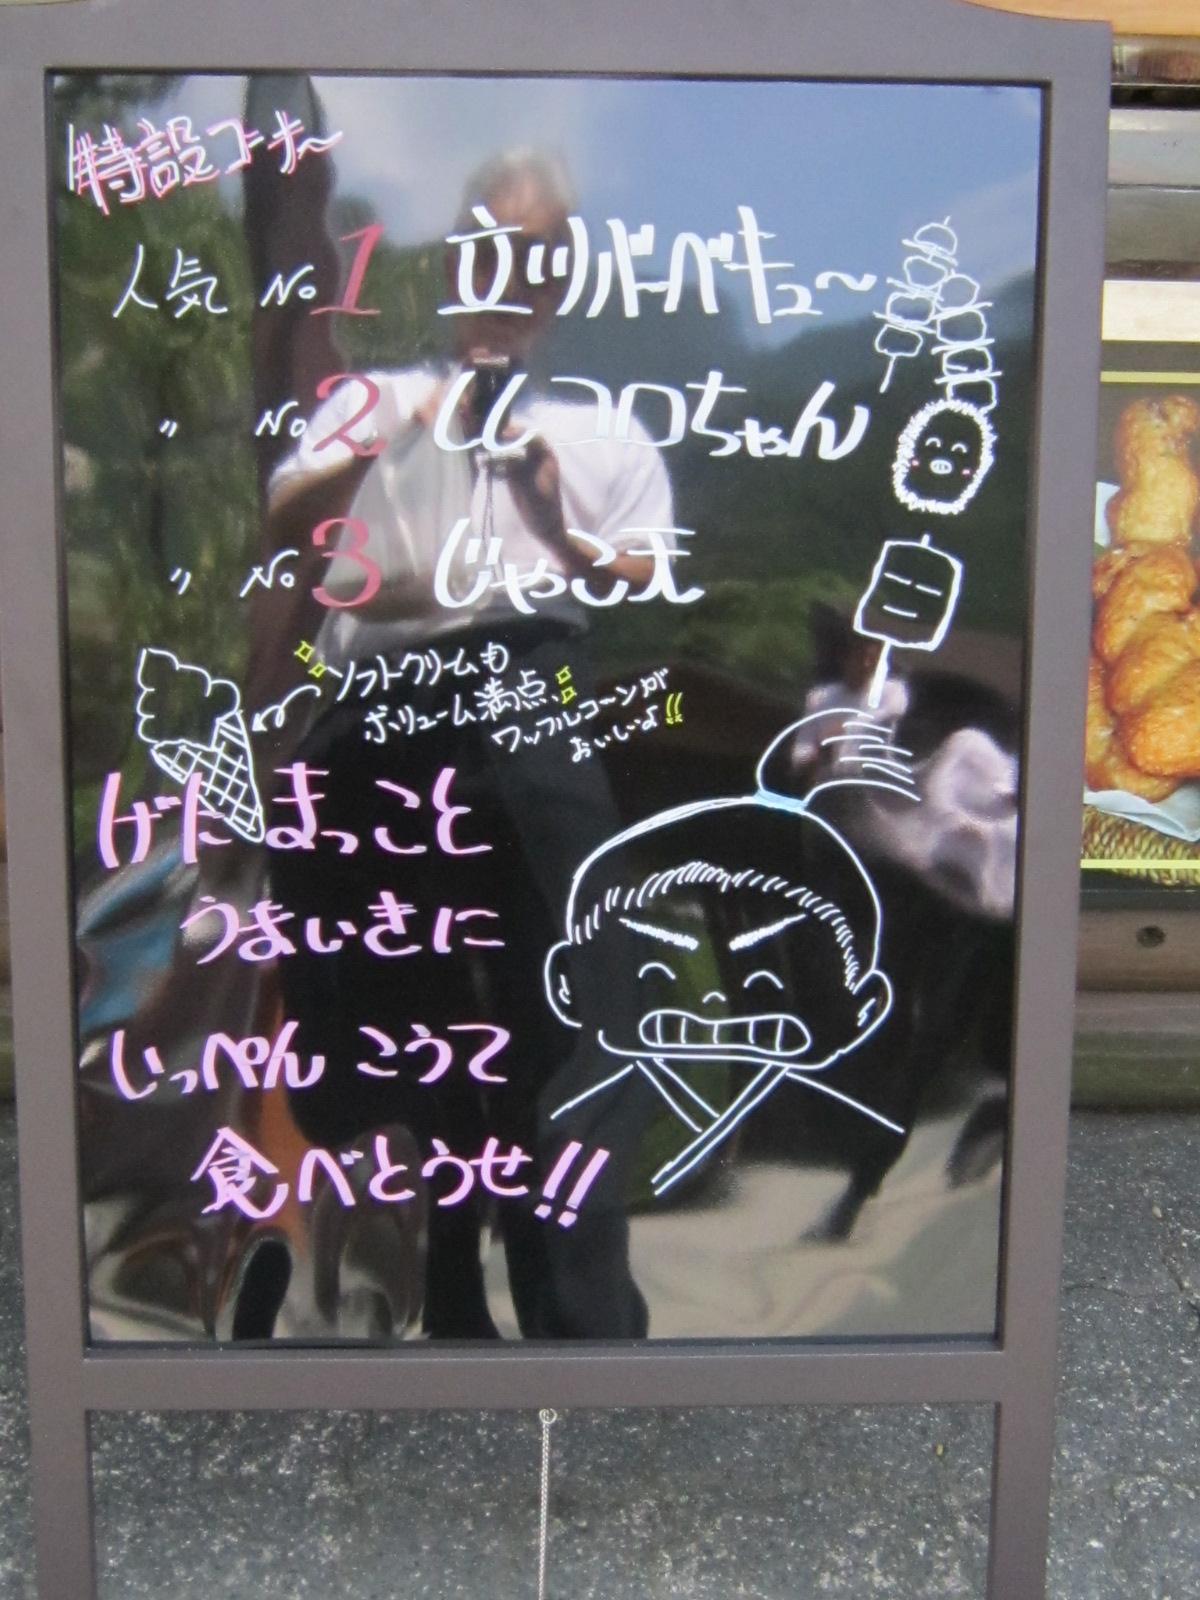 特設コーナ〜
人気 No 1 立川バーベキュ〜
〃 No 2 ししコロちゃん
〃 No 3 じゃこ天
ソフトクリームも
ボリューム満点、
ワッフルコーンが
おいしいよ!!
げにまっこと
うまいきに
いっぺん こうて
食べとうせ!!